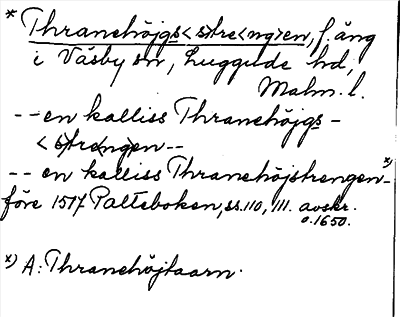 * Thranehöjgs<s>tre<ng>en, f. äng
i Väsby sn, Luggude hd,
Malm. l.
-- en kalliss Thranehöjgs-
<s>tre<ng>en --
-- en kalliss Thranehöjstrengen x) -
före 1517 Palteboken, ss. 110, 111. avskr.
o. 1650.
x) A: Thranehöjtaarn.